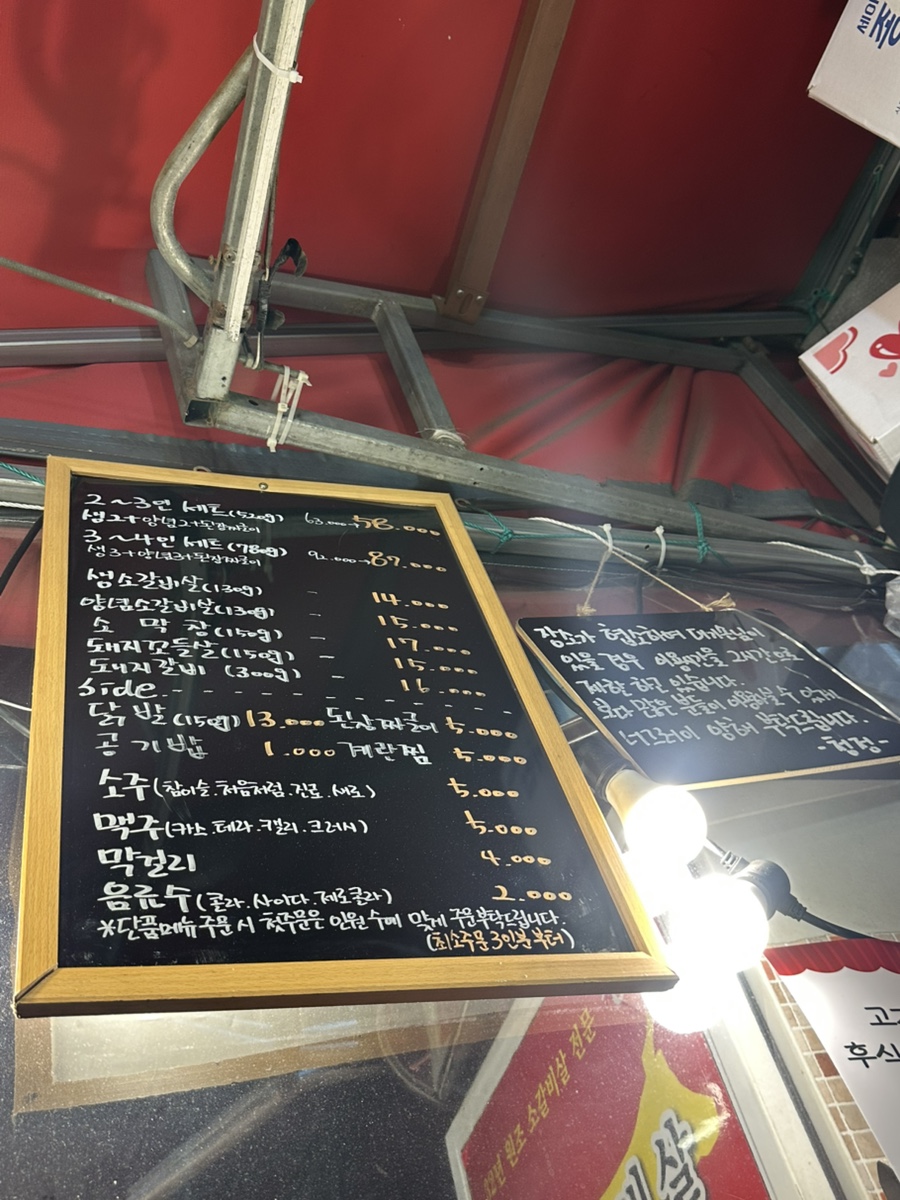 2~3인 세트(520g) 63.000→58.000
생2+양념2+된장찌개
3~4인 세트(780g) 92.000→87.000
생3+양념3+된장찌개
생소갈비살(130g) - 14.000
양념소갈비살(130g) - 15.000
소 막 창(150g) - 17.000
돼지꼬들살(150g) - 15.000
돼지갈비 (300g) - 16.000
Side
닭 발(150g) 13.000 된장찌개 5.000
공 기 밥 1.000 계란찜 5.000
소주(참이슬.처음처럼.진로.새로) 5.000
맥주(카스.테라.캘리.크러시) 5.000
막걸리 4.000
음료수(콜라.사이다.제로콜라) 2.000
※단품메뉴 주문 시 첫주문은 인원수에 맞게 주문부탁드립니다.
(최소주문 3인분 부터)
장소가 협소하여 대기손님이
있을 경우 이용시간을 2시간으로
제한 하고 있습니다.
보다 많은 분들이 이용하실 수 있게
너그러이 양해 부탁드립니다.
원조 소갈비살 전문
비살
고기
후식